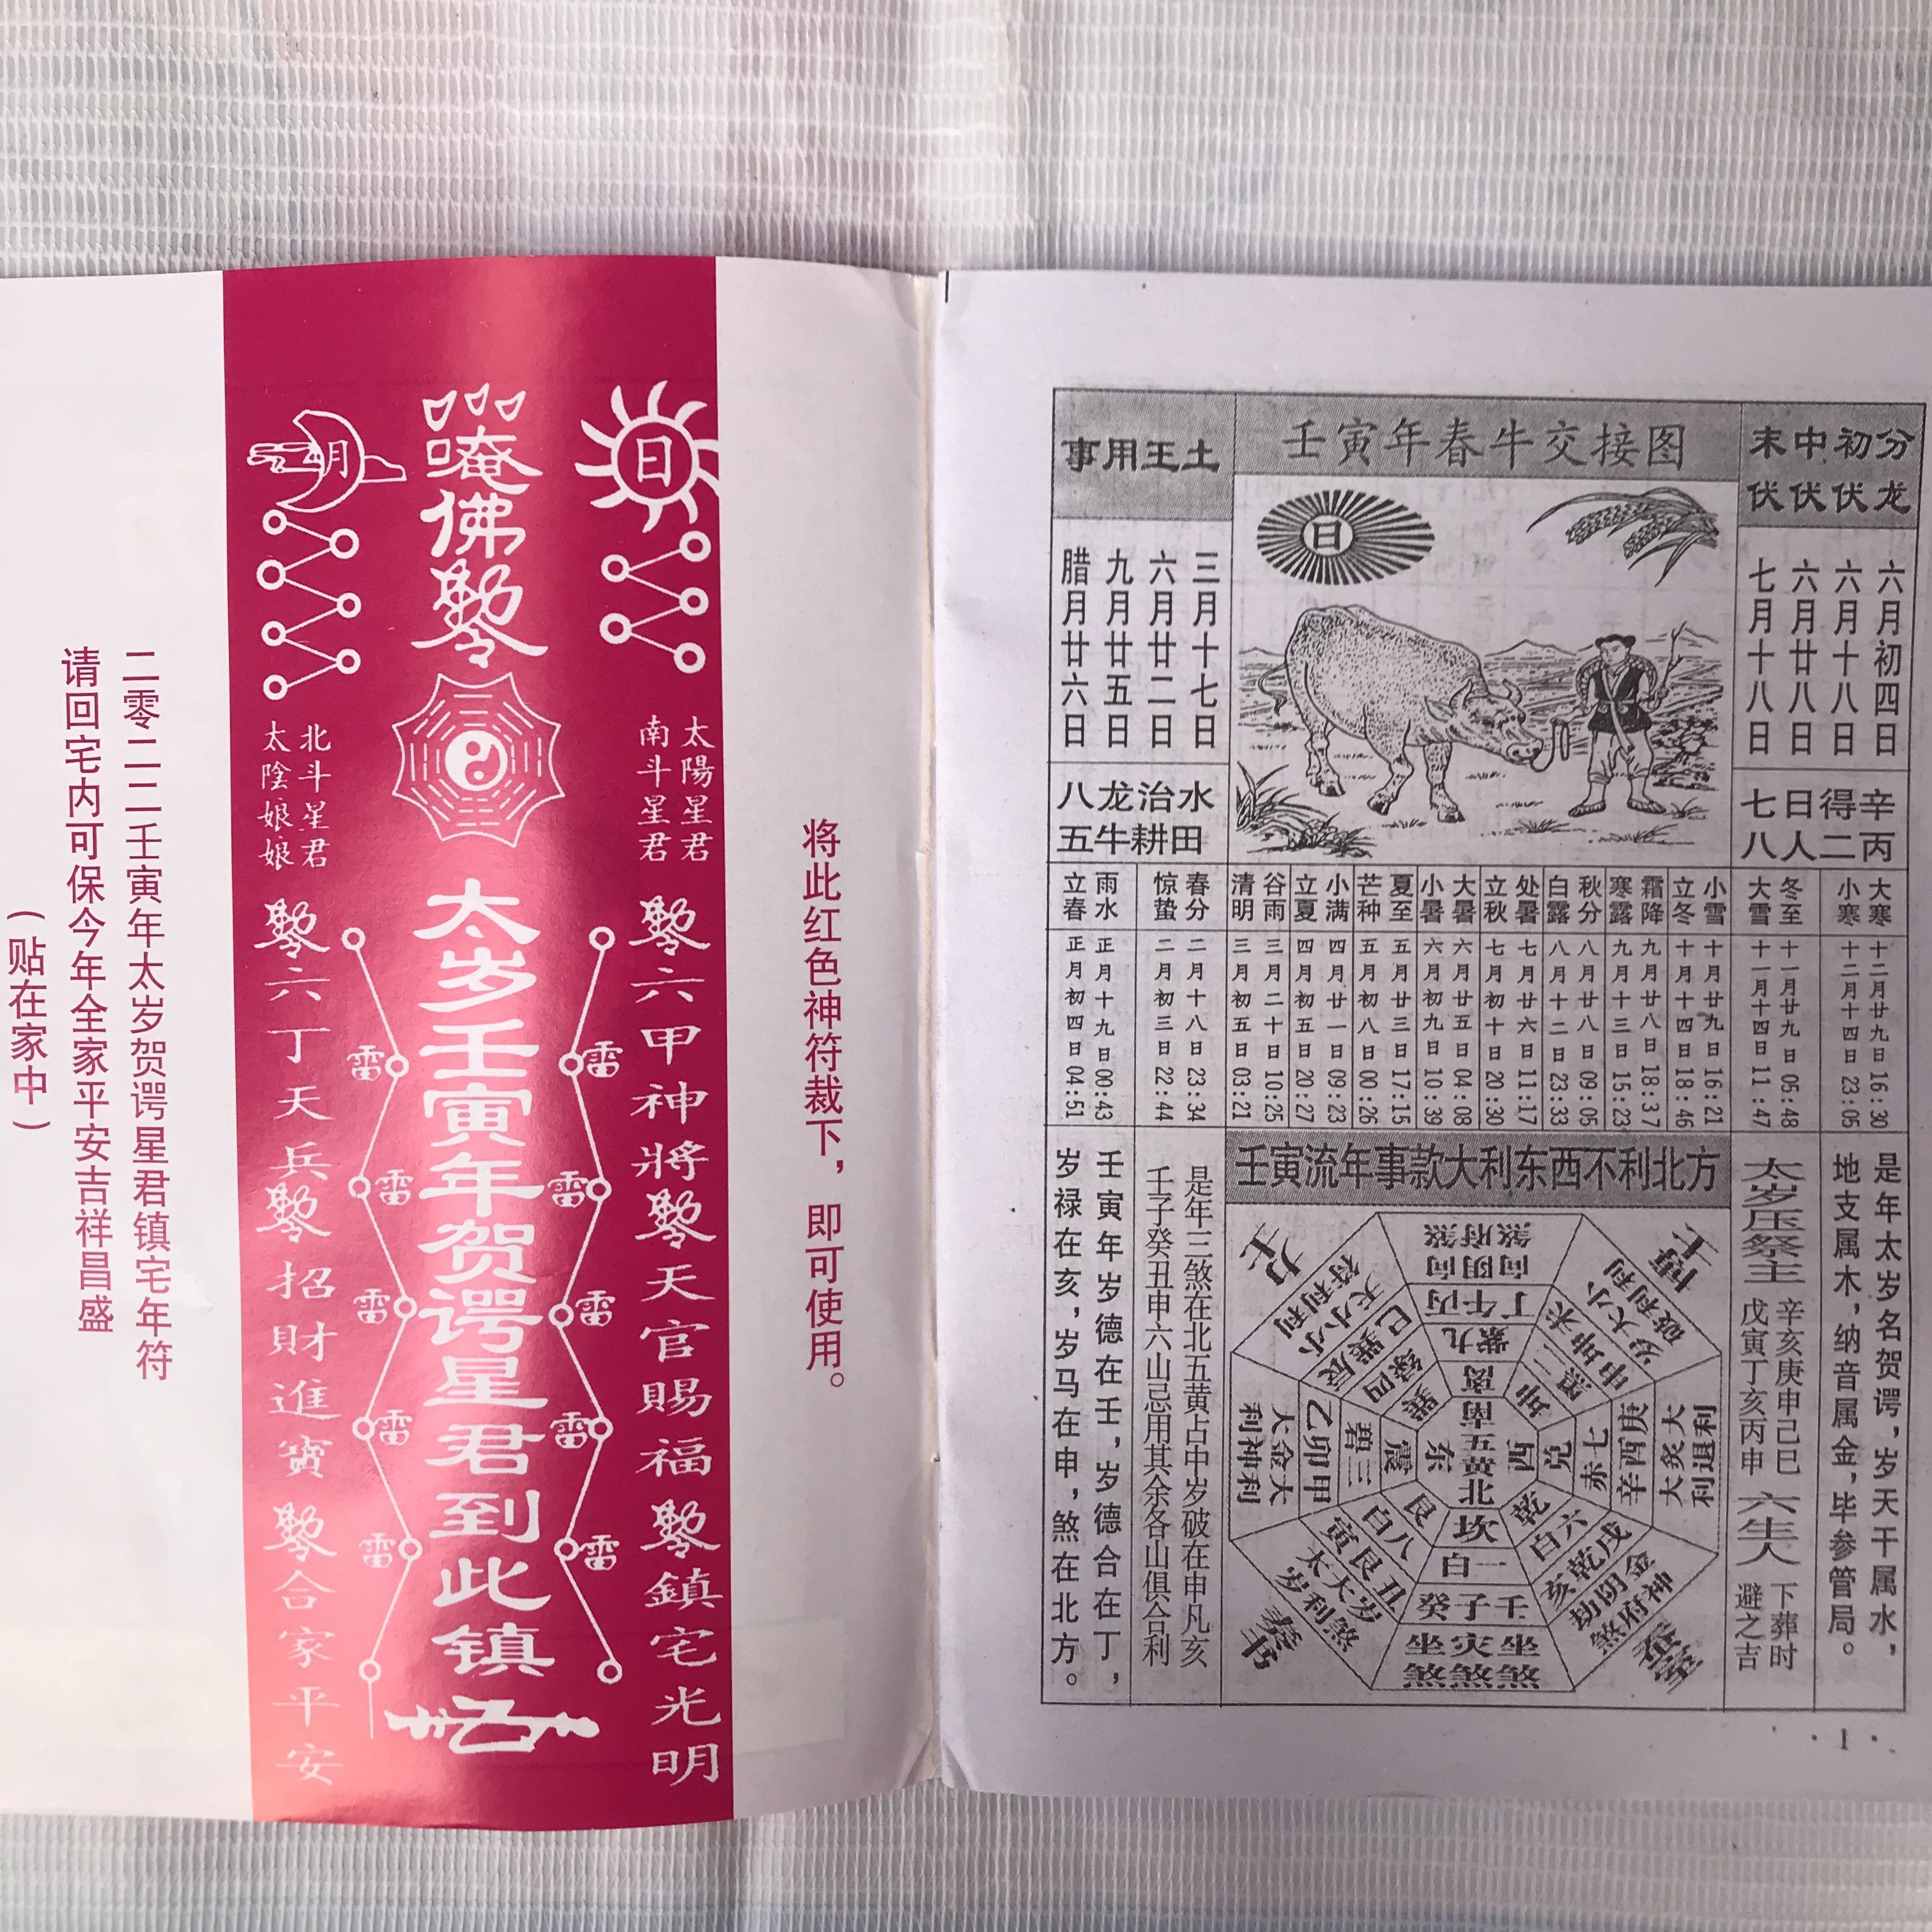 将此红色神符裁下，即可使用。
日
唵佛
太陽星君
南斗星君
北斗星君
太陰娘娘
六甲神將
天官賜福
鎮宅光明
太岁壬寅年贺谔星君到此镇
雷
雷
雷
雷
雷
雷
雷
雷
雷
雷
六丁天兵
招財進寶
合家平安
二零二二壬寅年太岁贺谔星君镇宅年符
请回宅内可保今年全家平安吉祥昌盛
(贴在家中)
壬寅年春牛交接图
日
分龙
初伏
中伏
末伏
六月初四日
六月十八日
六月廿八日
七月十八日
七日得辛
八人二丙
土王用事
三月十七日
六月廿二日
九月廿五日
腊月廿六日
八龙治水
五牛耕田
立春 正月初四日 04:51
雨水 正月十九日 00:43
惊蛰 二月初三日 22:44
春分 二月十八日 23:34
清明 三月初五日 03:21
谷雨 三月二十日 10:25
立夏 四月初五日 20:27
小满 四月廿一日 09:23
芒种 五月初八日 00:26
夏至 五月廿三日 17:15
小暑 六月初九日 10:39
大暑 六月廿五日 04:08
立秋 七月初十日 20:30
处暑 七月廿六日 11:17
白露 八月十二日 23:33
秋分 八月廿八日 09:05
寒露 九月十三日 15:23
霜降 九月廿八日 18:37
立冬 十月十四日 18:46
小雪 十月廿九日 16:21
大雪 十一月十四日 11:47
冬至 十一月廿九日 05:48
小寒 十二月十四日 23:05
大寒 十二月廿九日 16:30
是年太岁名贺谔，岁天干属水，
地支属木，纳音属金，毕参管局。
太岁压祭主
辛亥庚申己巳
戊寅丁亥丙申
六生人
下葬时
避之吉
壬寅流年事款大利东西不利北方
力士
博士
奏书
蚕室
向阴向
煞府煞
丁午丙
紫九
离
南
五黄
北
坎
白一
癸子壬
坐灾坐
煞煞煞
天小小
符利利
巳巽辰
绿四
巽
坤
黑二
申坤未
岁大小
破利利
东
震
碧三
乙卯甲
大金大
利神利
西
兑
赤七
辛酉庚
大炙大
利退利
艮
白八
寅艮丑
太大岁
岁利煞
乾
白六
亥乾戌
劫阴金
煞府神
是年三煞在北五黄占中岁破在申凡亥
壬子癸丑申六山忌用其余各山俱合利
壬寅年岁德在壬，岁德合在丁，
岁禄在亥，岁马在申，煞在北方。
·1·